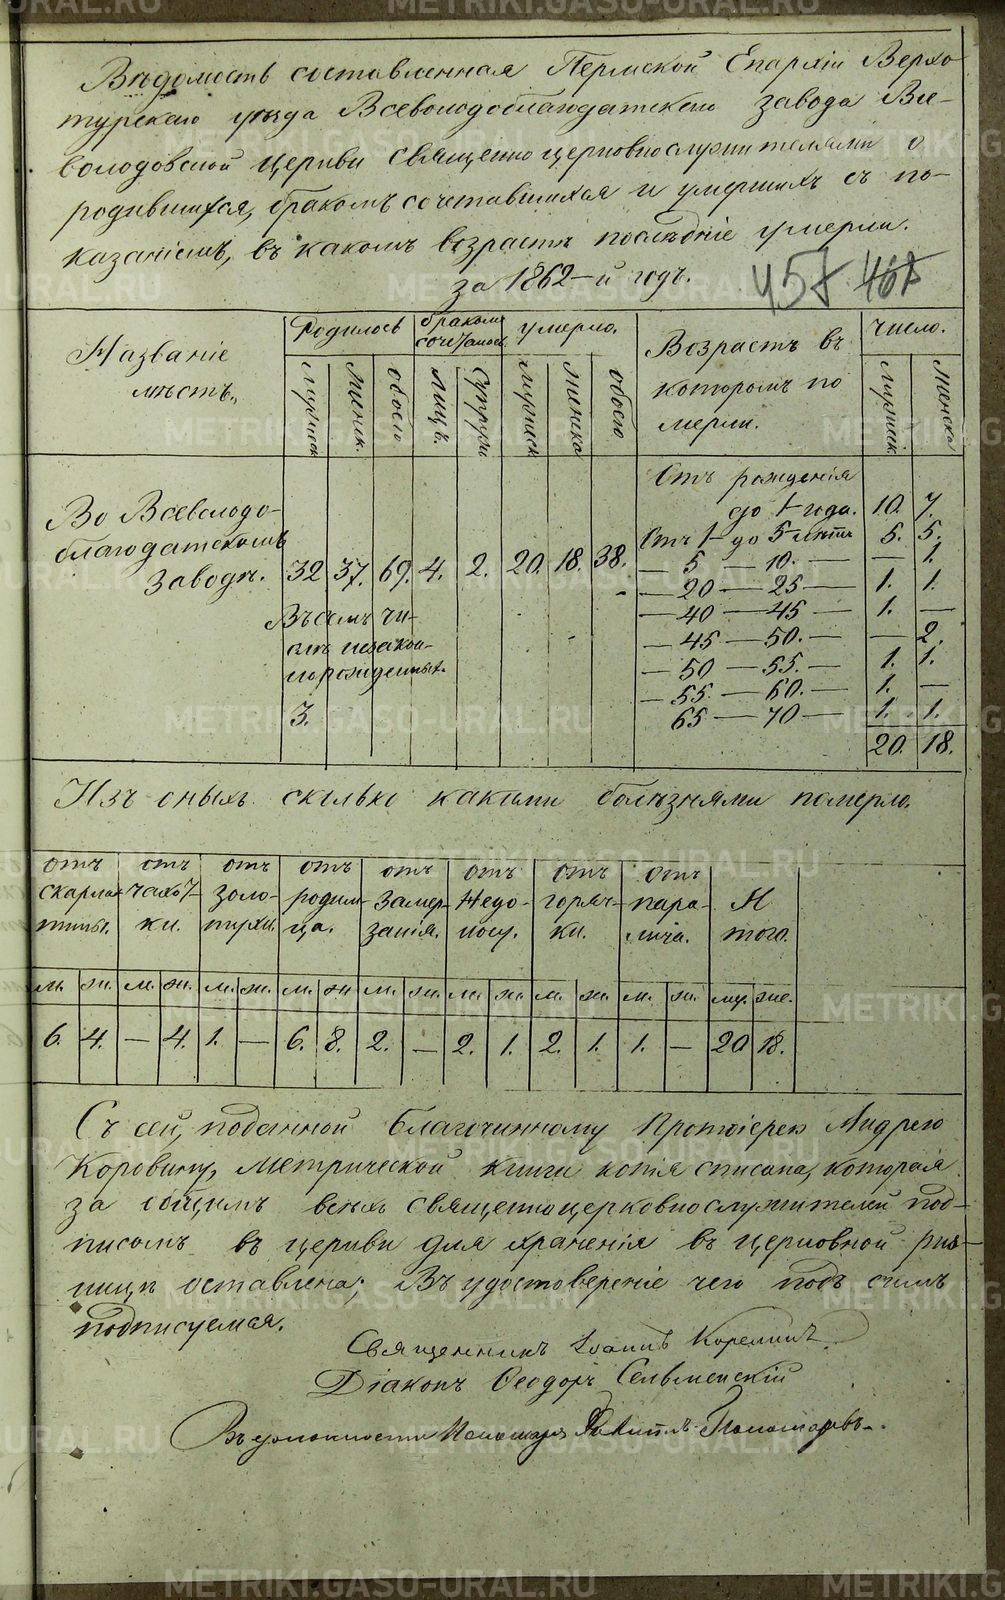 Вѣдомость составленная Пермской Епархіи Верхо-
турскаго уѣзда Всеволодоблагодатскаго завода Все-
володовской церкви священноцерковнослужителями о
родившихся, бракомъ сочетавшихся и умершихъ съ по-
казаніемъ, въ какомъ возрастѣ послѣдніе умерли.
за 1862-й годъ.
457 467
Названіе
мѣстъ.
Родилось
бракомъ
сочеталось
умерло.
Возрастъ въ
которомъ по
мерли.
число.
мужеск
женск.
обоего
лицъ.
супруж
мужеск
женска
обоего
мужеск.
женска
Во Всеволодо-
благодатскомъ
заводѣ.
32 37. 69. 4. 2. 20. 18. 38.
Въ семъ чи-
слѣ незакон-
норожденныхъ.
3.
Отъ рожденія
до 1-года. 10. 7.
Отъ 1-до 5-лѣтъ 5. 5.
— 5 — 10. — — 1.
— 20 — 25 — 1. 1.
— 40 — 45 — 1. —
— 45 — 50. — — 2.
— 50 — 55. — 1. 1.
— 55. — 60. — 1. —
65 — 70 — 1. 1.
20. 18.
Изъ оныхъ сколько какими болѣзнями померло.
отъ скарла-
тины.
отъ чахот-
ки.
отъ золо-
тухи.
отъ родим-
ца.
отъ замер-
занія.
отъ Недо-
носу.
отъ горяч-
ки.
отъ пара-
лича.
И
того.
м. ж. м. ж. м. ж. м. ж м. ж. м. ж. м. ж. м. ж. му. же.
6. 4. — 4. 1. — 6. 8. 2. — 2. 1. 2. 1. 1. — 20 18.
Съ сей, поданной Благочинному Протоіерею Андрею
Коровину, Метрической книги копія списана, которая
за общимъ всѣхъ священноцерковнослужителей под-
писомъ въ церкви для храненія въ церковной риз-
ницѣ оставлена; Въ удостовереніе чего подъ симъ
подписуемся.
Священникъ Іоаннъ
Діаконъ Ѳеодоръ
Въ должности Пономаря Пономаревъ.
METRIKI.GASO-URAL.RU